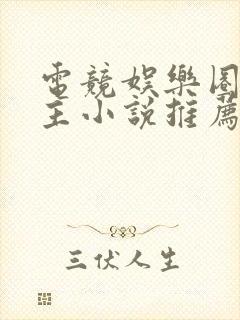 電競娛樂圈
主小說推薦
三伏人生